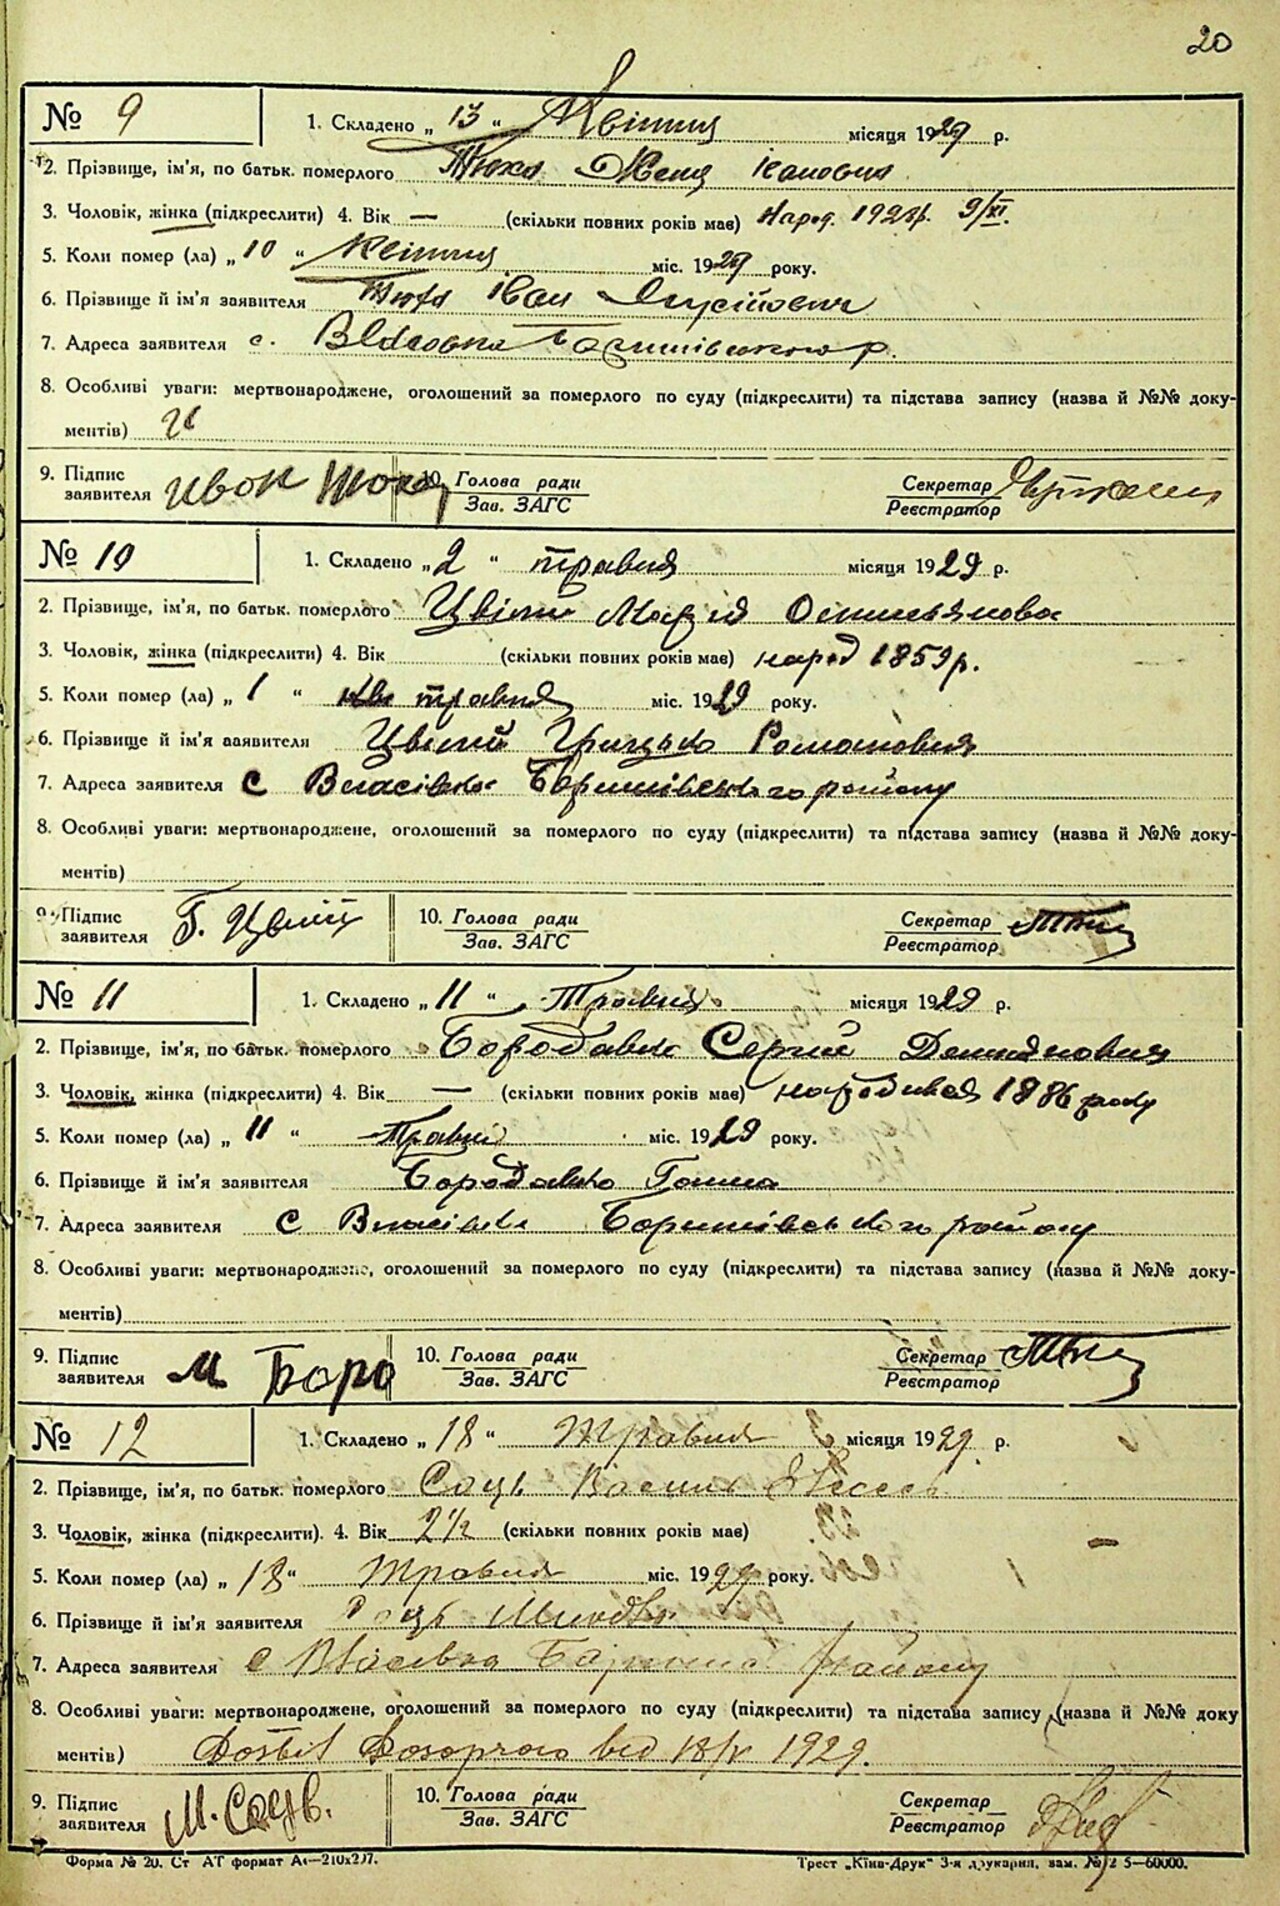 20
№ 9 1. Складено „ 13 “ Квітня місяця 1929 р.
2. Прізвище, ім'я, по батьк. померлого Тюха Женя Івановна
3. Чоловік, жінка (підкреслити) 4. Вік — (скільки повних років має) Народ. 1928р. 9/XI.
5. Коли помер (ла) „ 10 “ Квітня міс. 1929 року.
6. Прізвище й ім'я заявителя Тюха Іван
7. Адреса заявителя с. Власовка р.
8. Особливі уваги: мертвонароджене, оголошений за померлого по суду (підкреслити) та підстава запису (назва й №№ доку-
ментів)
9. Підпис заявителя Ивон Тюха 10. Голова ради Зав. ЗАГС Секретар Реєстратор
№ 10 1. Складено „ 2 “ травня місяця 1929 р.
2. Прізвище, ім'я, по батьк. померлого Цвілий Марія
3. Чоловік, жінка (підкреслити) 4. Вік (скільки повних років має) народ 1859р.
5. Коли помер (ла) „ 1 “ травня міс. 1929 року.
6. Прізвище й ім'я заявителя Цвілий Грицько Романович
7. Адреса заявителя С Власівка Баришівського району
8. Особливі уваги: мертвонароджене, оголошений за померлого по суду (підкреслити) та підстава запису (назва й №№ доку-
ментів)
9. Підпис заявителя Г. Цвілій 10. Голова ради Зав. ЗАГС Секретар Реєстратор
№ 11 1. Складено „ 11 “ Травня місяця 1929 р.
2. Прізвище, ім'я, по батьк. померлого Бородавко Сергій Демянович
3. Чоловік, жінка (підкреслити) 4. Вік — (скільки повних років має) народився 1886 року
5. Коли помер (ла) „ 11 “ Травня міс. 1929 року.
6. Прізвище й ім'я заявителя Бородавко Ганна
7. Адреса заявителя С Власівка Баришівського району
8. Особливі уваги: мертвонароджене, оголошений за померлого по суду (підкреслити) та підстава запису (назва й №№ доку-
ментів)
9. Підпис заявителя М Боро 10. Голова ради Зав. ЗАГС Секретар Реєстратор
№ 12 1. Складено „ 18 “ Травня місяця 1929 р.
2. Прізвище, ім'я, по батьк. померлого Соць
3. Чоловік, жінка (підкреслити). 4. Вік 2½ (скільки повних років має)
5. Коли помер (ла) „ 18 “ Травня міс. 1929 року.
6. Прізвище й ім'я заявителя Соць
7. Адреса заявителя с Власівка району
8. Особливі уваги: мертвонароджене, оголошений за померлого по суду (підкреслити) та підстава запису (назва й №№ доку
ментів) від 18/V 1929.
9. Підпис заявителя М. Соць. 10. Голова ради Зав. ЗАГС Секретар Реєстратор
Форма № 20. Ст АТ формат А4—210х297. Трест „Київ-Друк“ 3-я друкарня, зам. 5—60000.